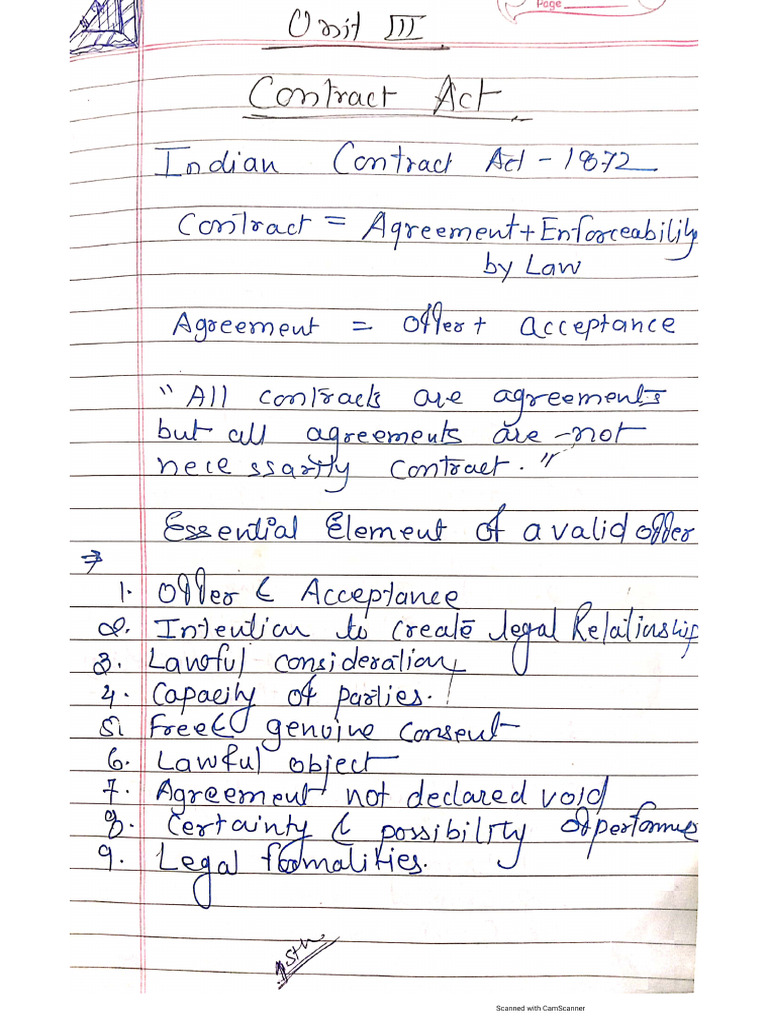 Page
Unit III
Contract Act
Indian Contract Act - 1872
Contract = Agreement + Enforceability
by Law
Agreement = Offer + acceptance
"All contracts are agreements
but all agreements are not
necessarily contract."
Essential Element of a valid offer
⇒
1. Offer & Acceptance
2. Intention to create legal Relationship
3. Lawful consideration
4. Capacity of parties.
5. Free & genuine consent
6. Lawful object
7. Agreement not declared void
8. Certainty & possibility of
9. Legal formalities.
Scanned with CamScanner